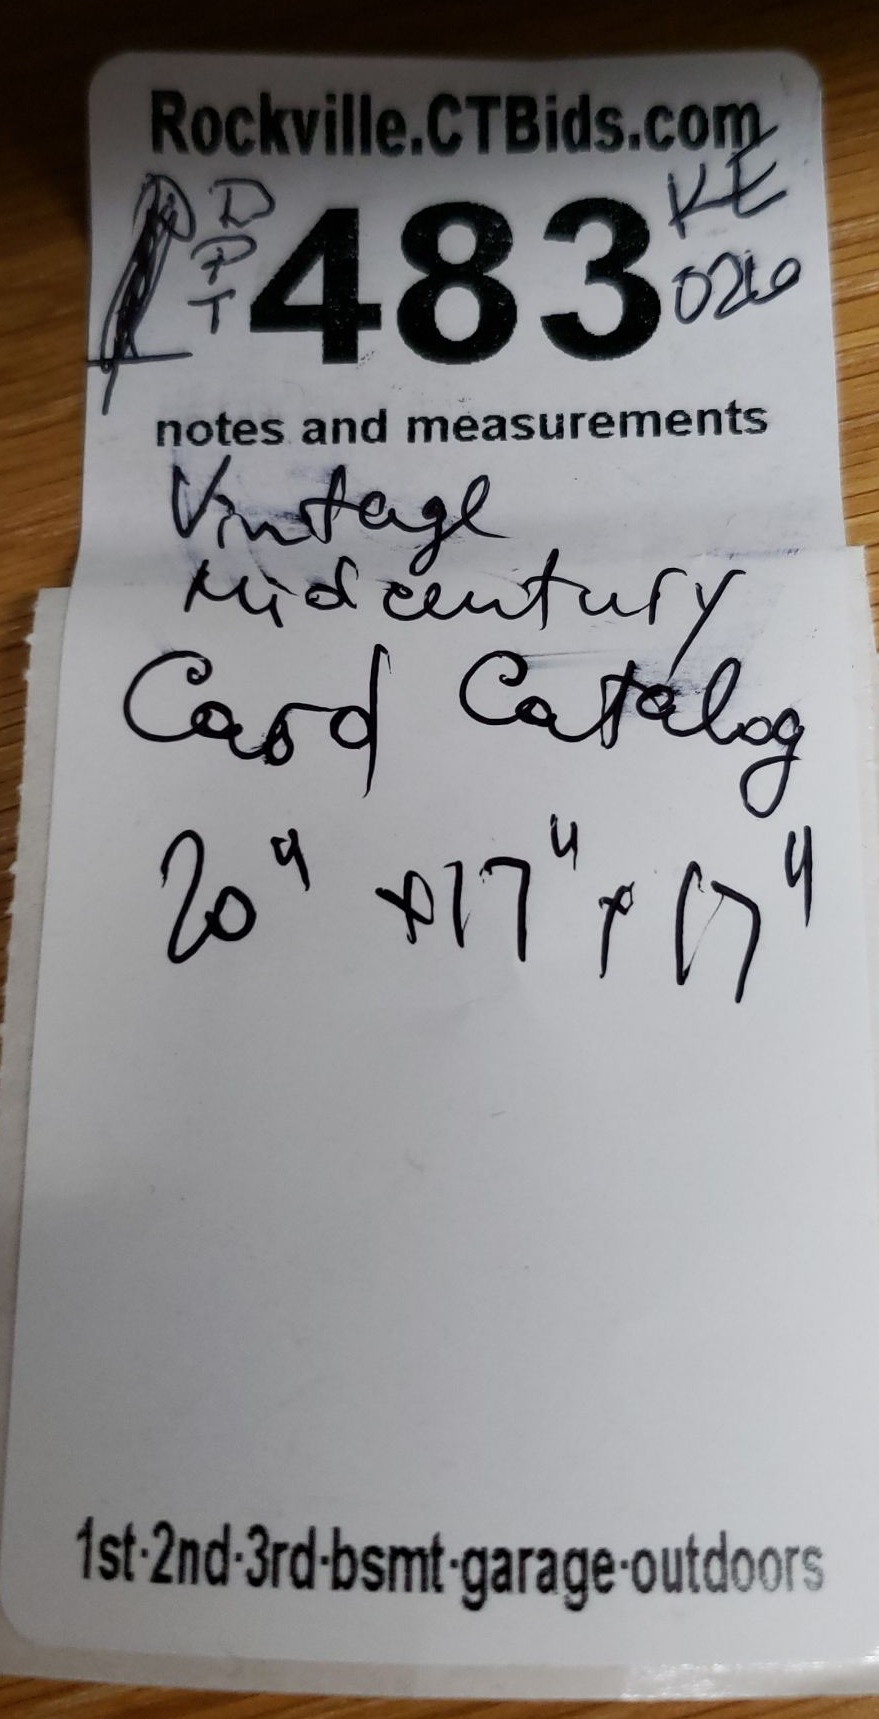 Rockville.CTBids.com
D
P
T
483
KE
026
notes and measurements
Vintage
Midcentury
Card Catalog
20" x 17" x 17"
1st·2nd·3rd·bsmt·garage·outdoors